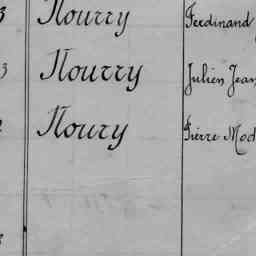 3 Nourry Ferdinand
3 Nourry Julien Jean
Noury Pierre Mod